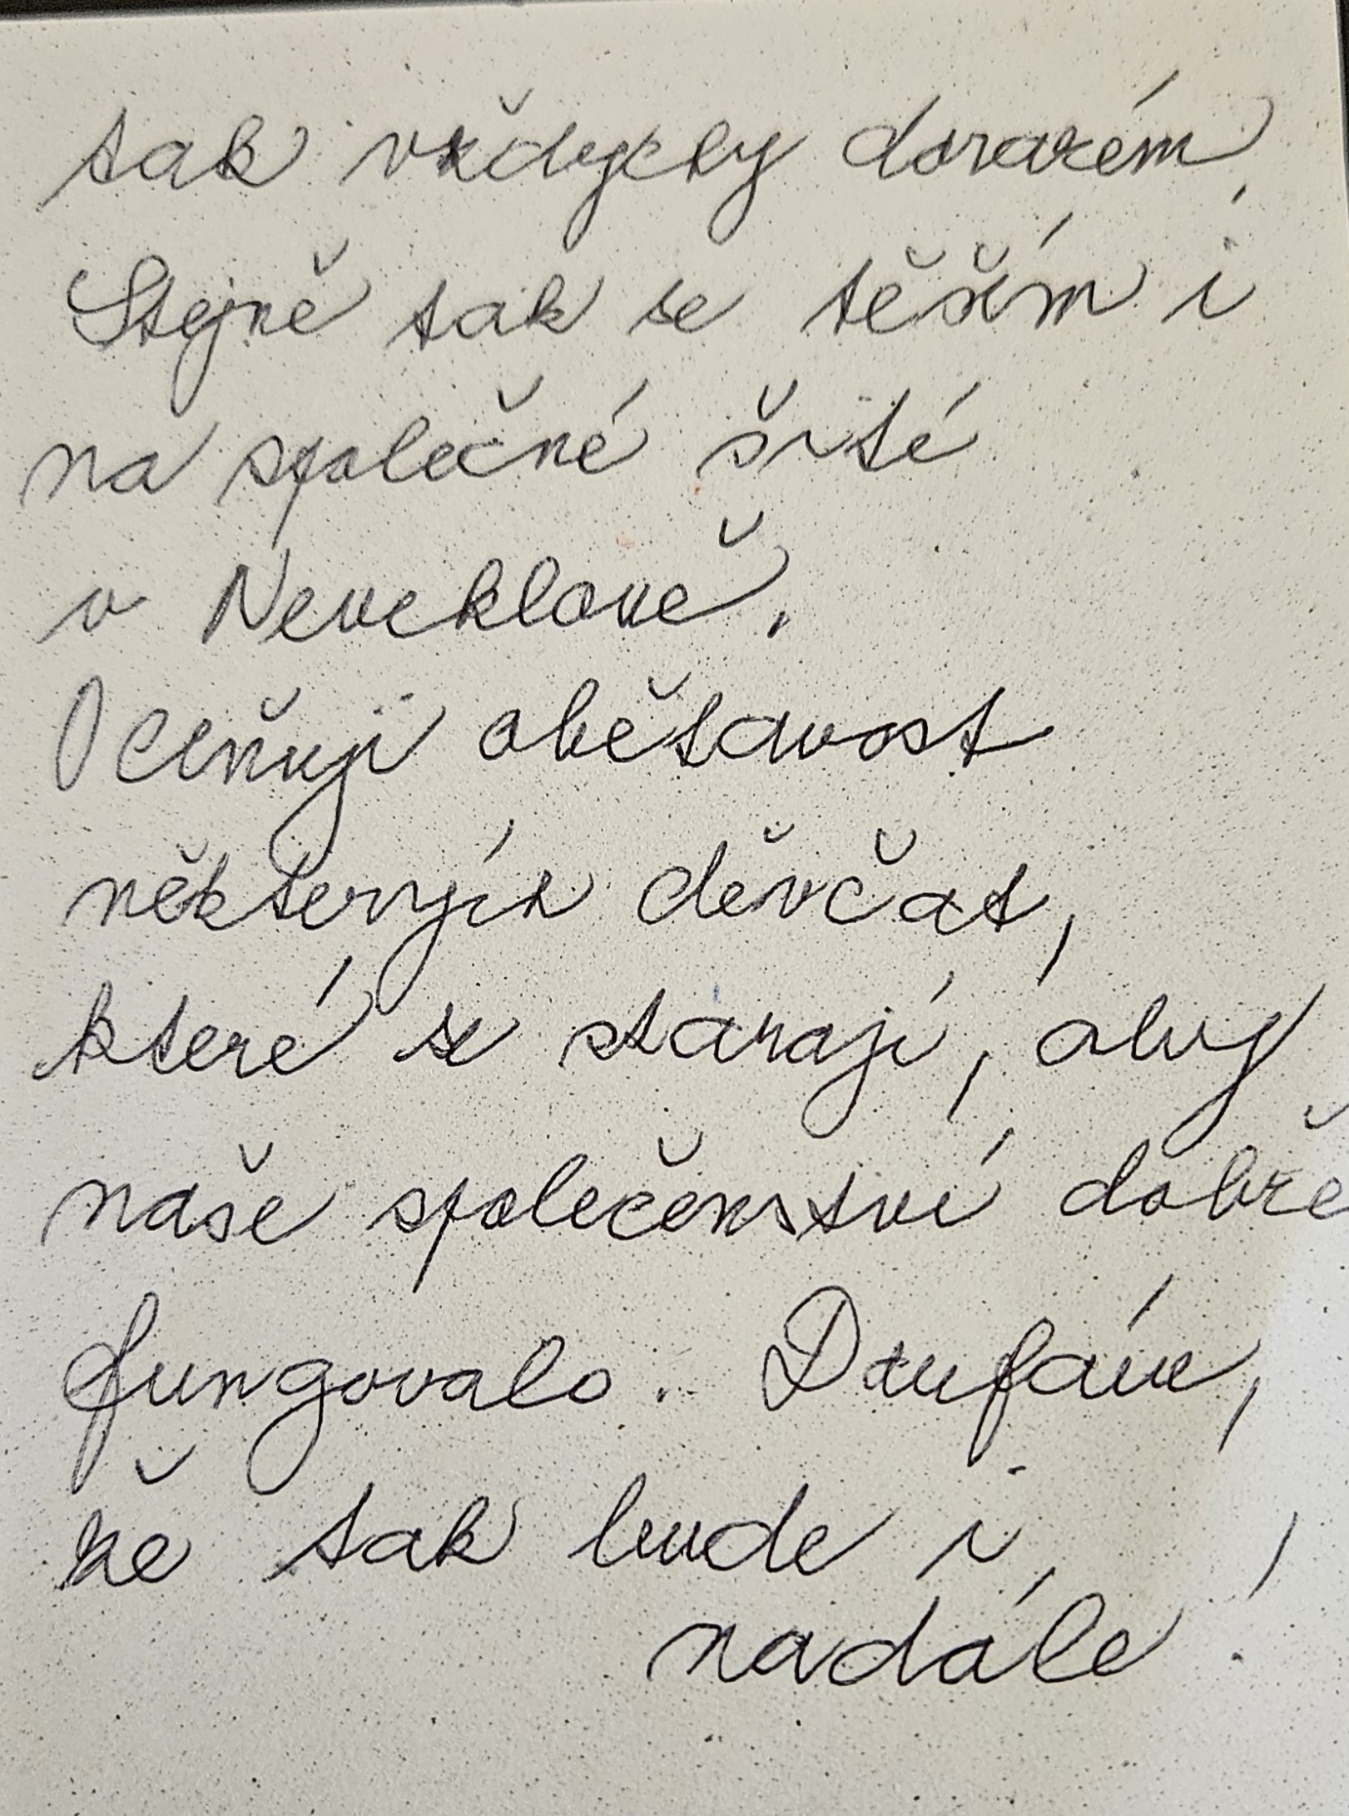 tak vždycky dorazím.
Stejně tak se těším i
na společné šití
v Neveklově.
Oceňuji obětavost
některých děvčat,
které se starají, aby
naše společenství dobře
fungovalo. Doufám,
že tak bude i
nadále!